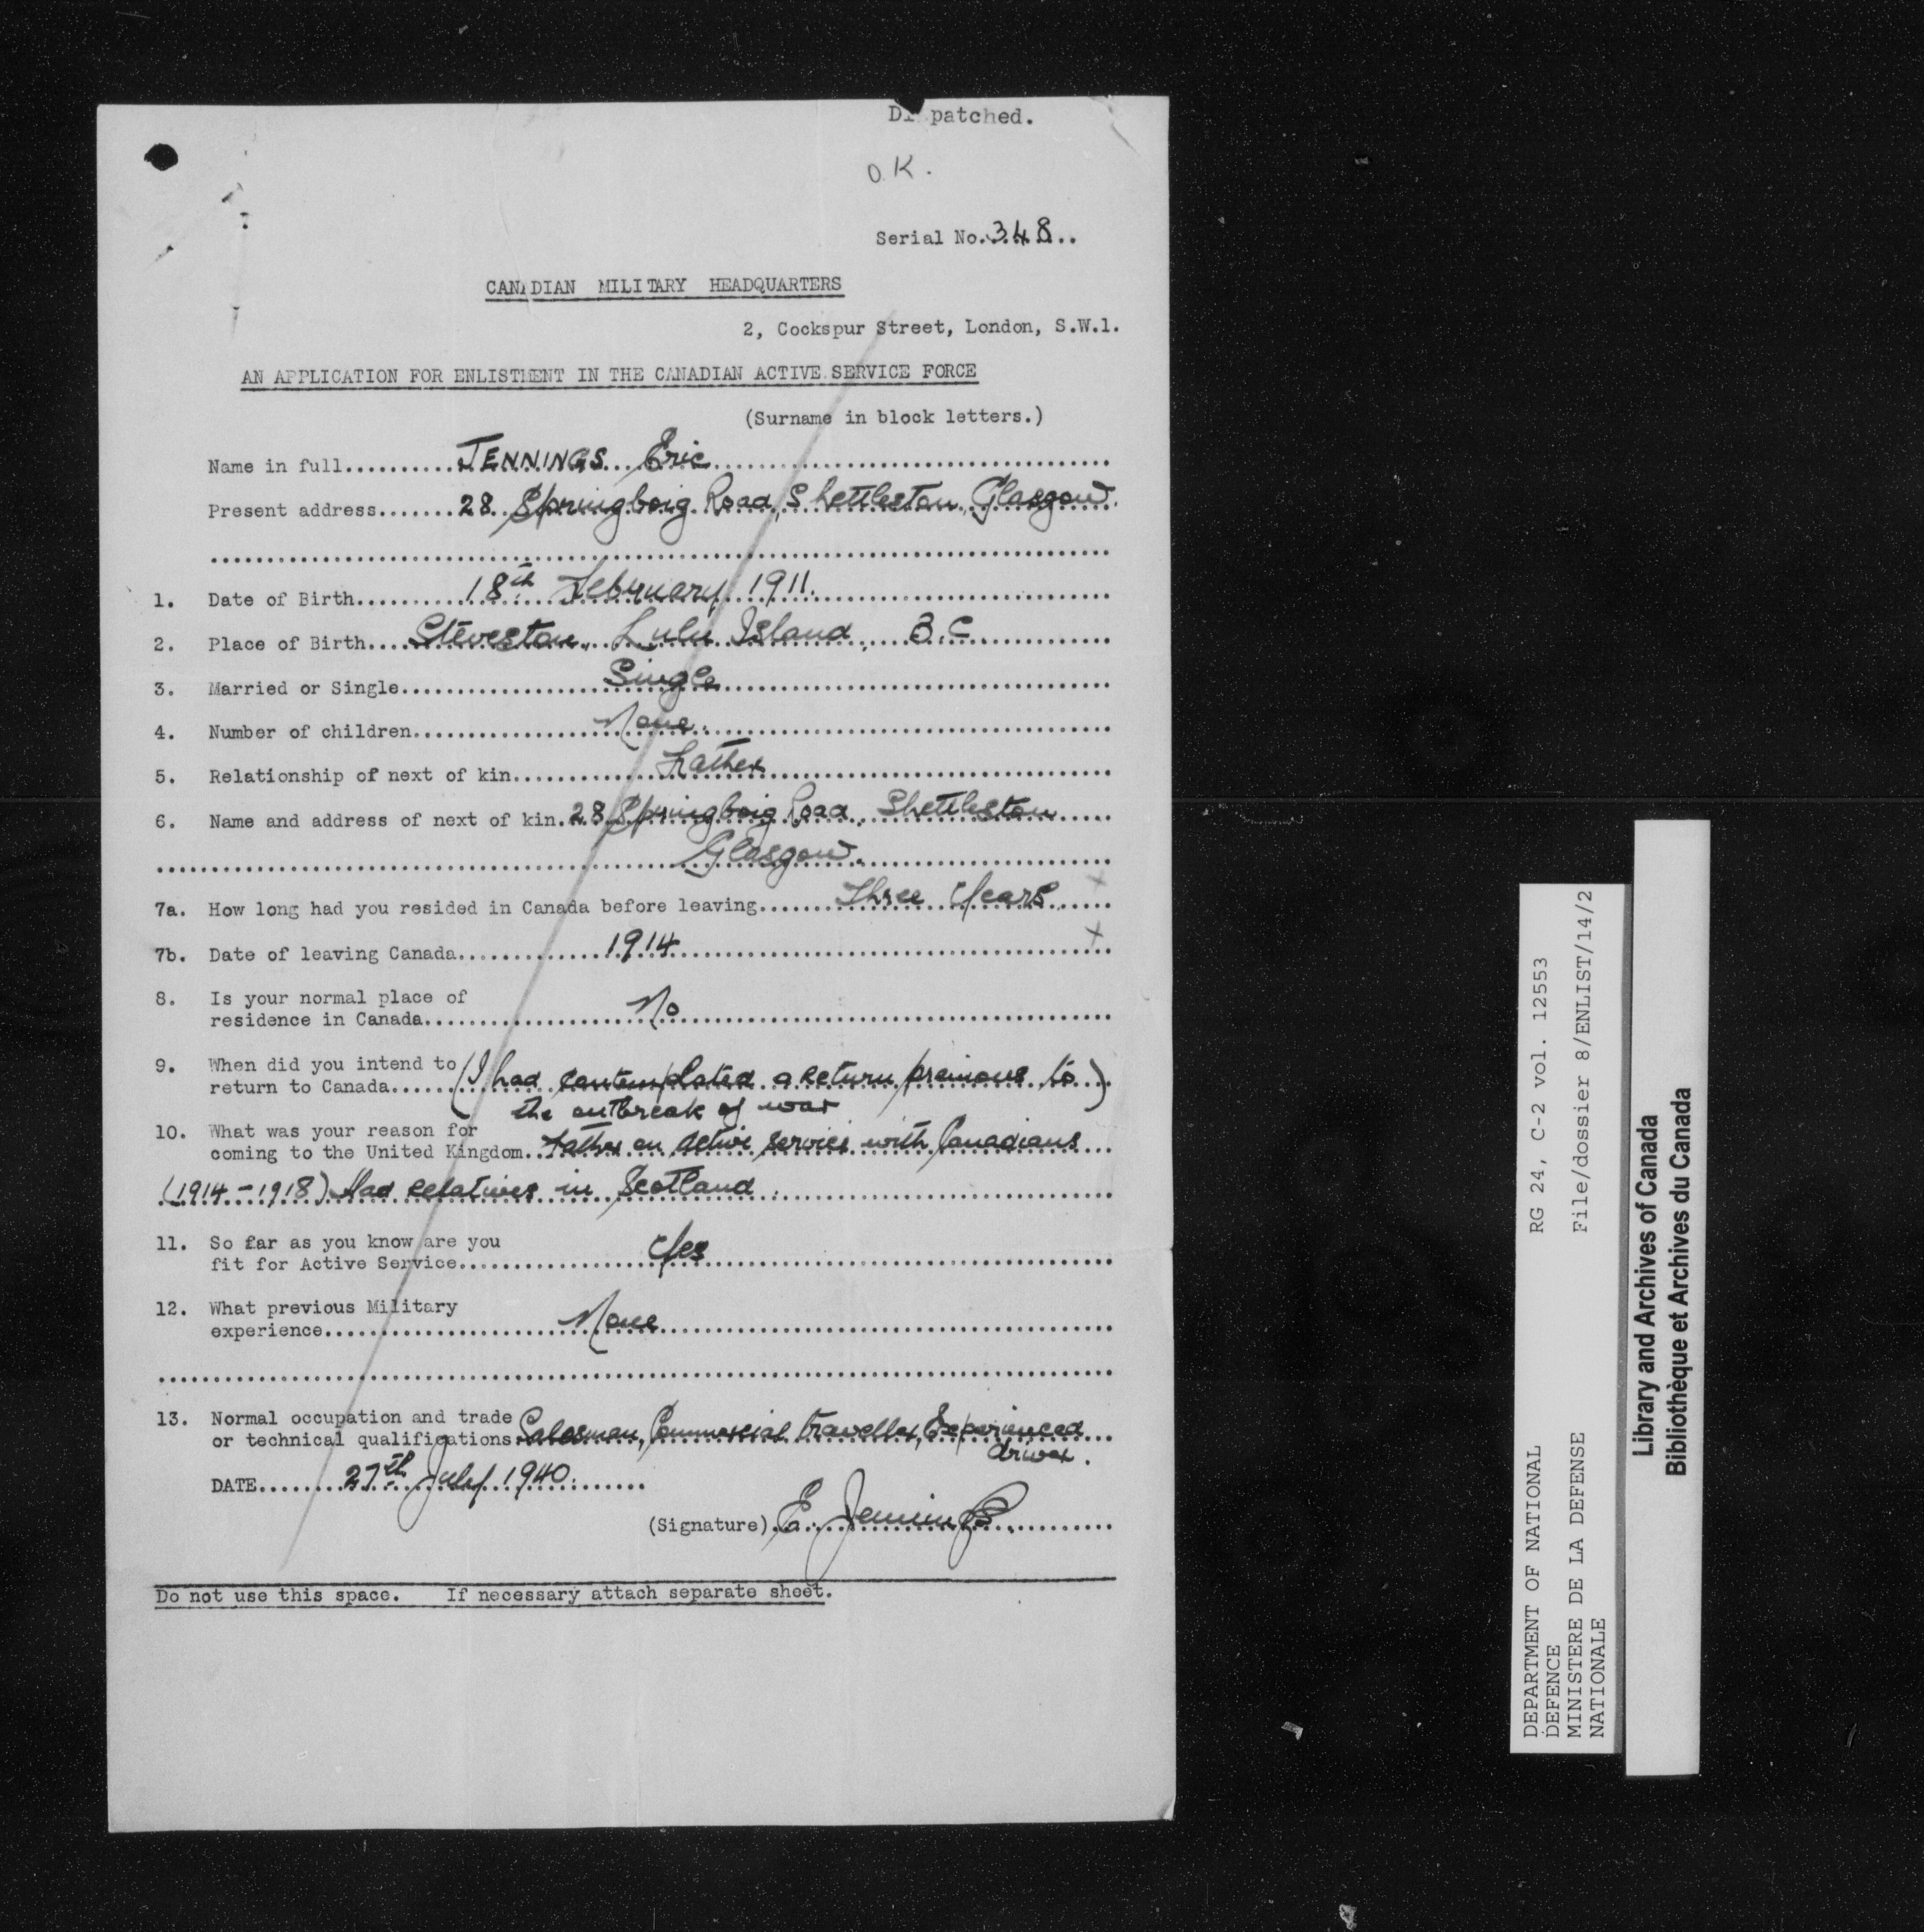 Dispatched.
O.K.
Serial No. 348
CANADIAN MILITARY HEADQUARTERS
2, Cockspur Street, London, S.W.1.
AN APPLICATION FOR ENLISTMENT IN THE CANADIAN ACTIVE SERVICE FORCE
(Surname in block letters.)
Name in full..........JENNINGS Eric
Present address.......28 Springboig Road, Shettleston, Glasgow.
1. Date of Birth..........18th February 1911.
2. Place of Birth....Steveston, Lulu Island, B.C
3. Married or Single..........Single
4. Number of children..........None.
5. Relationship of next of kin..........Father
6. Name and address of next of kin. 28 Springboig Road, Shettleston
Glasgow.
7a. How long had you resided in Canada before leaving.......Three Years. x
7b. Date of leaving Canada..........1914 x
8. Is your normal place of
residence in Canada..........No
9. When did you intend to
return to Canada......(I had contemplated a return previous to)
the outbreak of war
10. What was your reason for
coming to the United Kingdom..Father on active service with Canadians
(1914-1918) Had relatives in Scotland.
11. So far as you know are you
fit for Active Service..........Yes
12. What previous Military
experience..........None
13. Normal occupation and trade
or technical qualifications.Salesman, Commercial traveller, Experienced
driver.
DATE........27th July 1940.
(Signature). E. Jennings.
Do not use this space. If necessary attach separate sheet.
DEPARTMENT OF NATIONAL DEFENCE RG 24, C-2 vol. 12553
MINISTERE DE LA DEFENSE NATIONALE File/dossier 8/ENLIST/14/2
Library and Archives of Canada
Bibliothèque et Archives du Canada